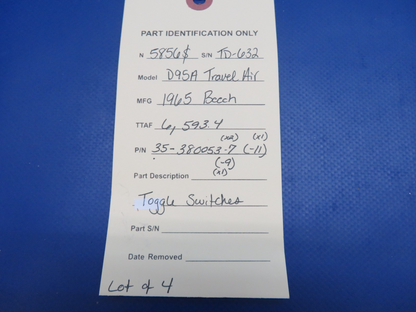 PART IDENTIFICATION ONLY
N 5856$ S/N TD-632
Model D95A Travel Air
MFG 1965 Beech
TTAF 6,593.4
(x2) (x1)
P/N 35-380053-7 (-11)
(-9)
Part Description (x1)
Toggle Switches
Part S/N
Date Removed
Lot of 4